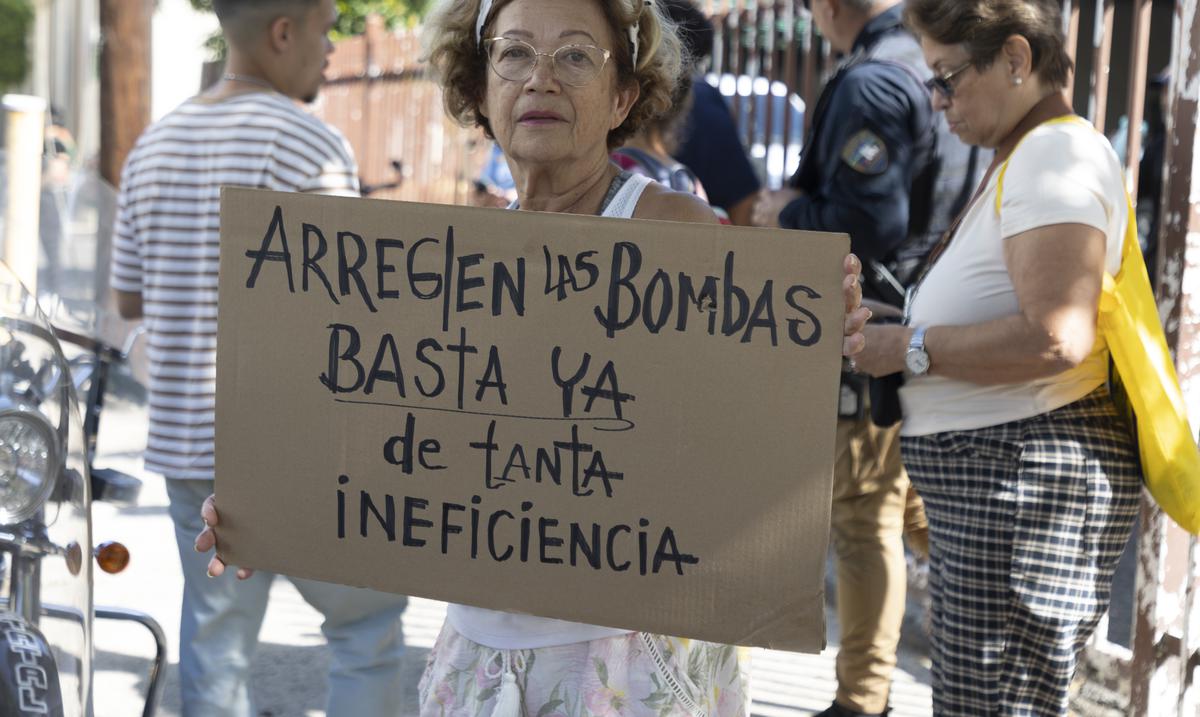 ARREGlEN LAS BOMbAS
BASTA YA
de tANTA
iNEFiCiENCiA